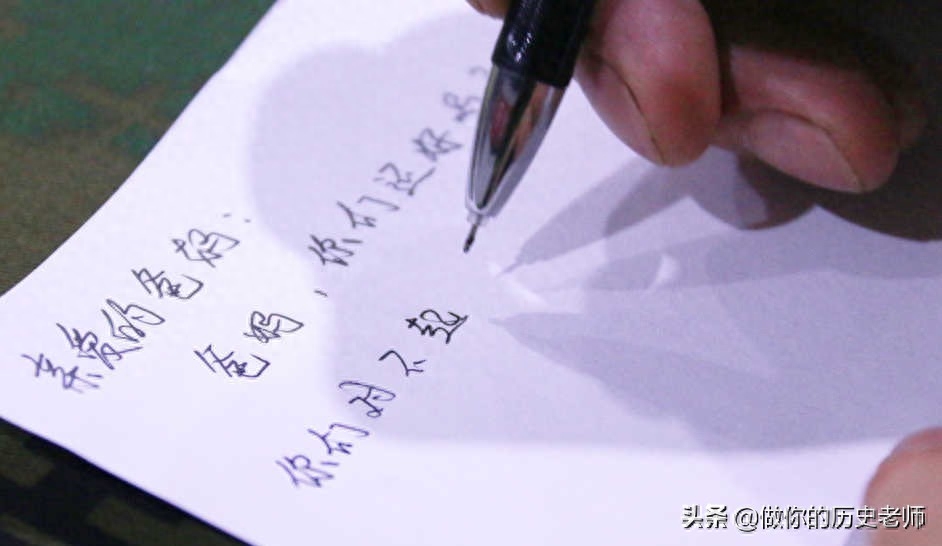 亲爱的爸妈：
爸妈，你们还好吗？
你们对不起
头条 @做你的历史老师